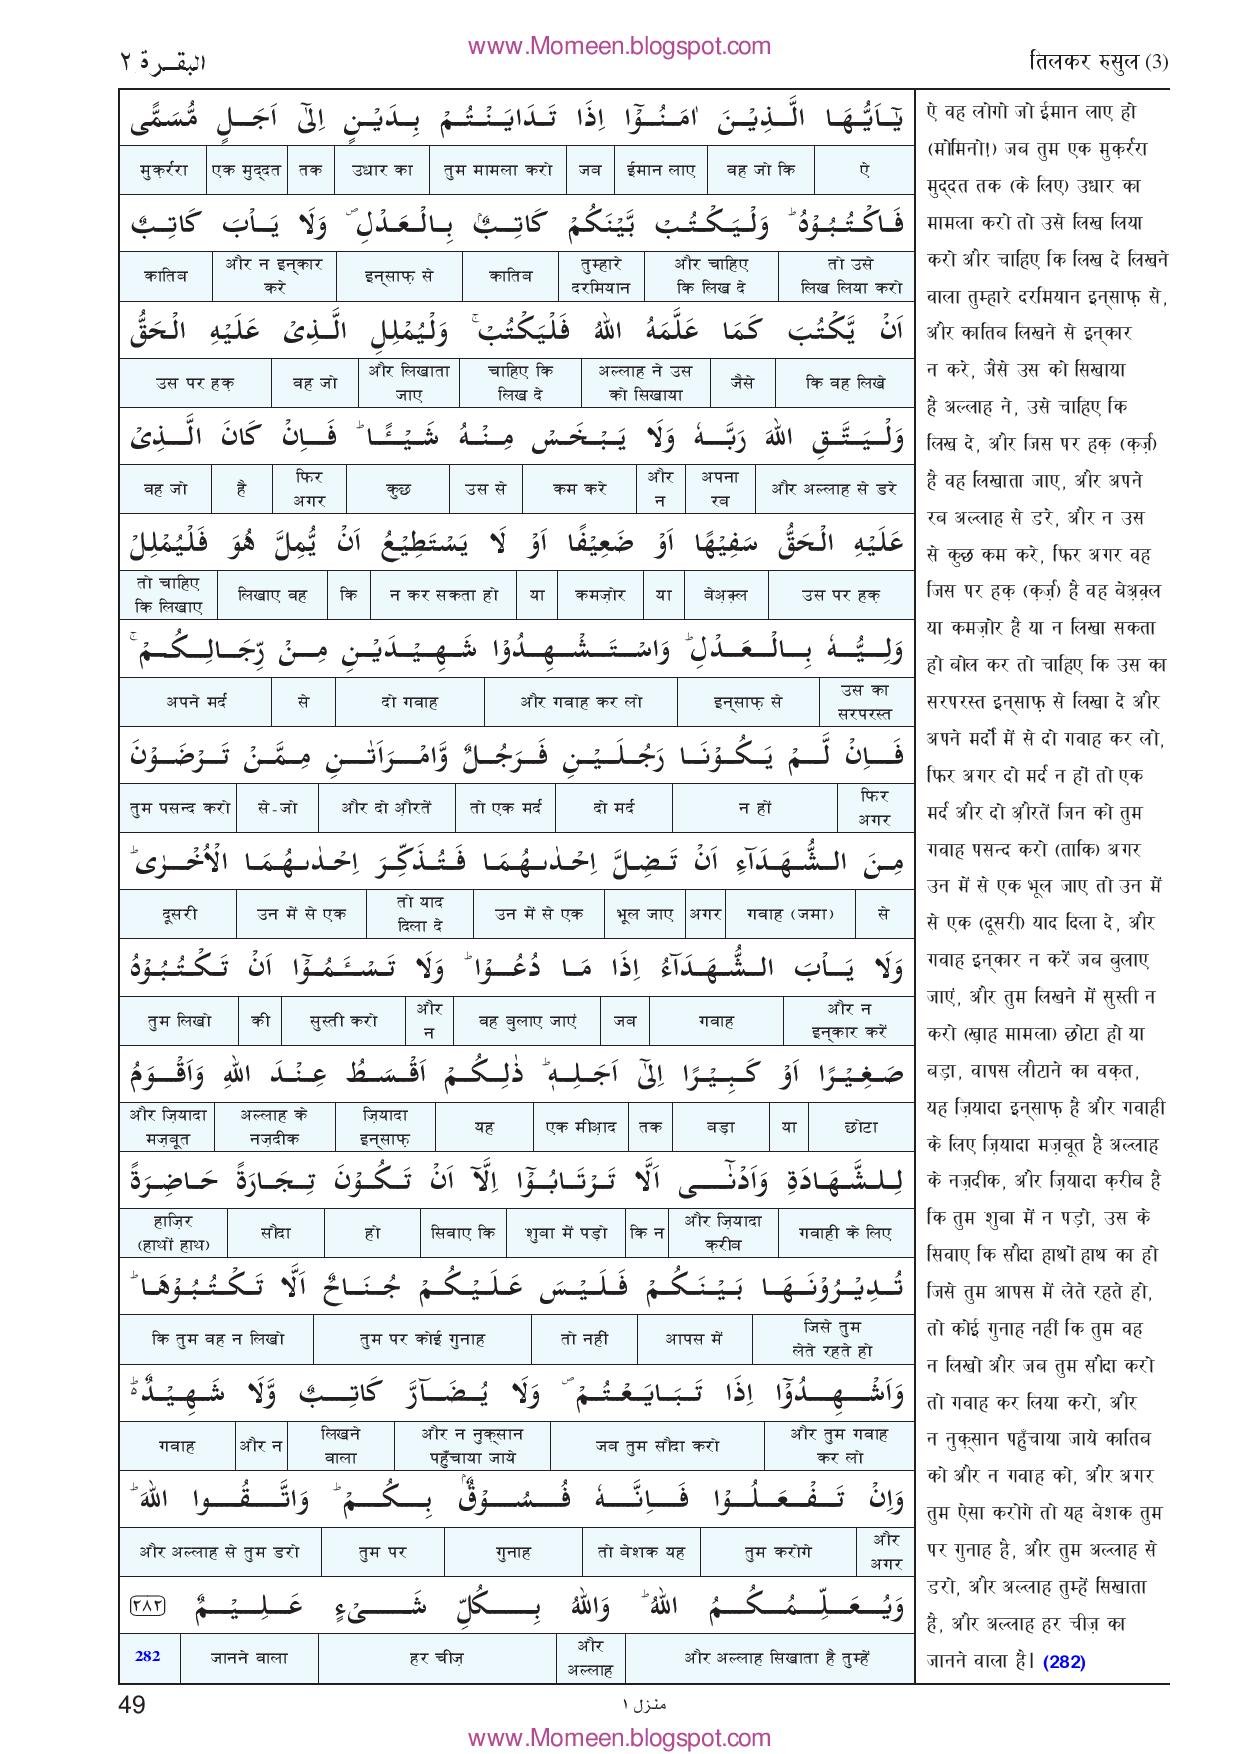 www.Momeen.blogspot.com
البقرة ٢
तिलकर रुसुल (3)
يٰۤاَيُّهَا الَّذِيْنَ اٰمَنُوْۤا اِذَا تَدَايَنْتُمْ بِدَيْنٍ اِلٰۤى اَجَلٍ مُّسَمًّى
ऐ वह जो कि ईमान लाए जब तुम मामला करो उधार का तक एक मुद्दत मुक़र्ररा
فَاكْتُبُوْهُ ؕ وَلْيَكْتُبْ بَّيْنَكُمْ كَاتِبٌۢ بِالْعَدْلِ ۪ وَلَا يَاْبَ كَاتِبٌ
तो उसे लिख लिया करो और चाहिए कि लिख दे तुम्हारे दरमियान कातिब इन्साफ़ से और न इन्कार करे कातिब
اَنْ يَّكْتُبَ كَمَا عَلَّمَهُ اللّٰهُ فَلْيَكْتُبْ ۚ وَلْيُمْلِلِ الَّذِيْ عَلَيْهِ الْحَقُّ
कि वह लिखे जैसे अल्लाह ने उस को सिखाया चाहिए कि लिख दे और लिखाता जाए वह जो उस पर हक़
وَلْيَتَّقِ اللّٰهَ رَبَّهٗ وَلَا يَبْخَسْ مِنْهُ شَيْـًٔا ؕ فَاِنْ كَانَ الَّذِيْ
और अल्लाह से डरे अपना रब और न कम करे उस से कुछ फिर अगर है वह जो
عَلَيْهِ الْحَقُّ سَفِيْهًا اَوْ ضَعِيْفًا اَوْ لَا يَسْتَطِيْعُ اَنْ يُّمِلَّ هُوَ فَلْيُمْلِلْ
उस पर हक़ बेअ़क़्ल या कमज़ोर या न कर सकता हो कि लिखाए वह तो चाहिए कि लिखाए
وَلِيُّهٗ بِالْعَدْلِ ؕ وَاسْتَشْهِدُوْا شَهِيْدَيْنِ مِنْ رِّجَالِكُمْ ۚ
उस का सरपरस्त इन्साफ़ से और गवाह कर लो दो गवाह से अपने मर्द
فَاِنْ لَّمْ يَكُوْنَا رَجُلَيْنِ فَرَجُلٌ وَّامْرَاَتٰنِ مِمَّنْ تَرْضَوْنَ
फिर अगर न हों दो मर्द तो एक मर्द और दो औ़रतें से-जो तुम पसन्द करो
مِنَ الشُّهَدَآءِ اَنْ تَضِلَّ اِحْدٰىهُمَا فَتُذَكِّرَ اِحْدٰىهُمَا الْاُخْرٰى ؕ
से गवाह (जमा) अगर भूल जाए उन में से एक तो याद दिला दे उन में से एक दूसरी
وَلَا يَاْبَ الشُّهَدَآءُ اِذَا مَا دُعُوْا ؕ وَلَا تَسْـَٔمُوْۤا اَنْ تَكْتُبُوْهُ
और न इन्कार करें गवाह जब वह बुलाए जाएं और न सुस्ती करो की तुम लिखो
صَغِيْرًا اَوْ كَبِيْرًا اِلٰۤى اَجَلِهٖ ؕ ذٰلِكُمْ اَقْسَطُ عِنْدَ اللّٰهِ وَاَقْوَمُ
छोटा या बड़ा तक एक मीआ़द यह ज़ियादा इन्साफ़ अल्लाह के नज़दीक और ज़ियादा मज़बूत
لِلشَّهَادَةِ وَاَدْنٰۤى اَلَّا تَرْتَابُوْۤا اِلَّاۤ اَنْ تَكُوْنَ تِجَارَةً حَاضِرَةً
गवाही के लिए और ज़ियादा क़रीब कि न शुबा में पड़ो सिवाए कि हो सौदा हाज़िर (हाथों हाथ)
تُدِيْرُوْنَهَا بَيْنَكُمْ فَلَيْسَ عَلَيْكُمْ جُنَاحٌ اَلَّا تَكْتُبُوْهَا ؕ
जिसे तुम लेते रहते हो आपस में तो नहीं तुम पर कोई गुनाह कि तुम वह न लिखो
وَاَشْهِدُوْۤا اِذَا تَبَايَعْتُمْ ۪ وَلَا يُضَآرَّ كَاتِبٌ وَّلَا شَهِيْدٌ ؕ۬
और तुम गवाह कर लो जब तुम सौदा करो और न नुक़्सान पहुँचाया जाये लिखने वाला और न गवाह
وَاِنْ تَفْعَلُوْا فَاِنَّهٗ فُسُوْقٌۢ بِكُمْ ؕ وَاتَّقُوا اللّٰهَ ؕ
और अगर तुम करोगे तो बेशक यह गुनाह तुम पर और अल्लाह से तुम डरो
وَيُعَلِّمُكُمُ اللّٰهُ ؕ وَاللّٰهُ بِكُلِّ شَيْءٍ عَلِيْمٌ ٢٨٢
और अल्लाह सिखाता है तुम्हें और अल्लाह हर चीज़ जानने वाला 282
ऐ वह लोगो जो ईमान लाए हो
(मोमिनो!) जब तुम एक मुक़र्ररा
मुद्दत तक (के लिए) उधार का
मामला करो तो उसे लिख लिया
करो और चाहिए कि लिख दे लिखने
वाला तुम्हारे दरमियान इन्साफ़ से,
और कातिब लिखने से इन्कार
न करे, जैसे उस को सिखाया
है अल्लाह ने, उसे चाहिए कि
लिख दे, और जिस पर हक़ (क़र्ज़)
है वह लिखाता जाए, और अपने
रब अल्लाह से डरे, और न उस
से कुछ कम करे, फिर अगर वह
जिस पर हक़ (क़र्ज़) है वह बेअ़क़्ल
या कमज़ोर है या न लिखा सकता
हो बोल कर तो चाहिए कि उस का
सरपरस्त इन्साफ़ से लिखा दे और
अपने मर्दों में से दो गवाह कर लो,
फिर अगर दो मर्द न हों तो एक
मर्द और दो औ़रतें जिन को तुम
गवाह पसन्द करो (ताकि) अगर
उन में से एक भूल जाए तो उन में
से एक (दूसरी) याद दिला दे, और
गवाह इन्कार न करें जब बुलाए
जाएं, और तुम लिखने में सुस्ती न
करो (ख़ाह मामला) छोटा हो या
बड़ा, वापस लौटाने का वक़्त,
यह ज़ियादा इन्साफ़ है और गवाही
के लिए ज़ियादा मज़बूत है अल्लाह
के नज़दीक, और ज़ियादा क़रीब है
कि तुम शुबा में न पड़ो, उस के
सिवाए कि सौदा हाथों हाथ का हो
जिसे तुम आपस में लेते रहते हो,
तो कोई गुनाह नहीं कि तुम वह
न लिखो और जब तुम सौदा करो
तो गवाह कर लिया करो, और
न नुक़्सान पहुँचाया जाये कातिब
को और न गवाह को, और अगर
तुम ऐसा करोगे तो यह बेशक तुम
पर गुनाह है, और तुम अल्लाह से
डरो, और अल्लाह तुम्हें सिखाता
है, और अल्लाह हर चीज़ का
जानने वाला है। (282)
49
منزل ١
www.Momeen.blogspot.com